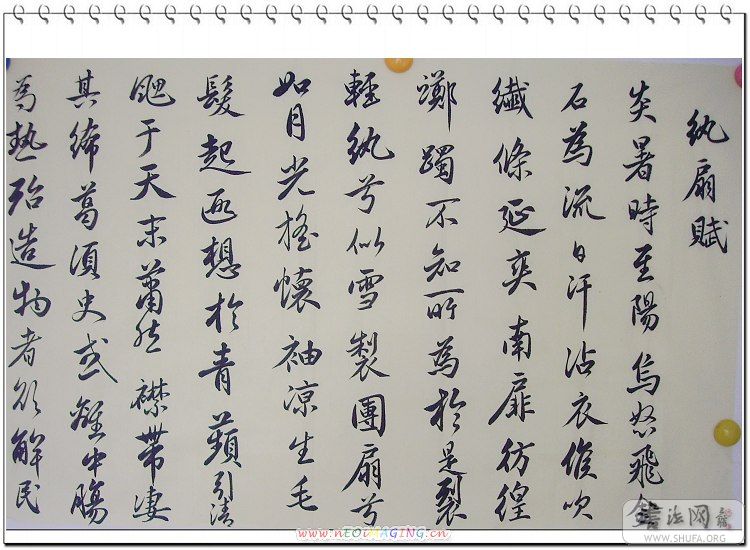 紈扇賦
炎暑時至陽烏怒飛金
石為流日汗沾衣俟吹
纖條延爽南扉彷徨
躑躅不知所為於是裂
輕紈兮似雪製團扇兮
如月光搖懷袖凉生毛
髮起遐想於青蘋引清
飔于天末蕭然襟帶凄
其絺葛須臾或中
為熱殆造物者欲解民
www.nEOiMAGiNG.cn
書法网
WWW.SHUFA.ORG